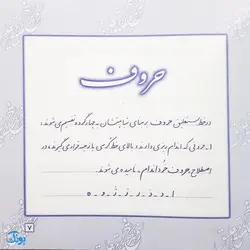 حروف
در خط نستعلیق حروف بر مبنای نیازشان به چهار گروه تقسیم می شوند:
۱- حروفی که اندام ریزی دارند و بالای خط کرسی یا زمینه قرار می گیرند و در
اصطلاح حروف خُرد اندام نامیده می شوند.
ا د ر ز ژ و ه
۷
بونک